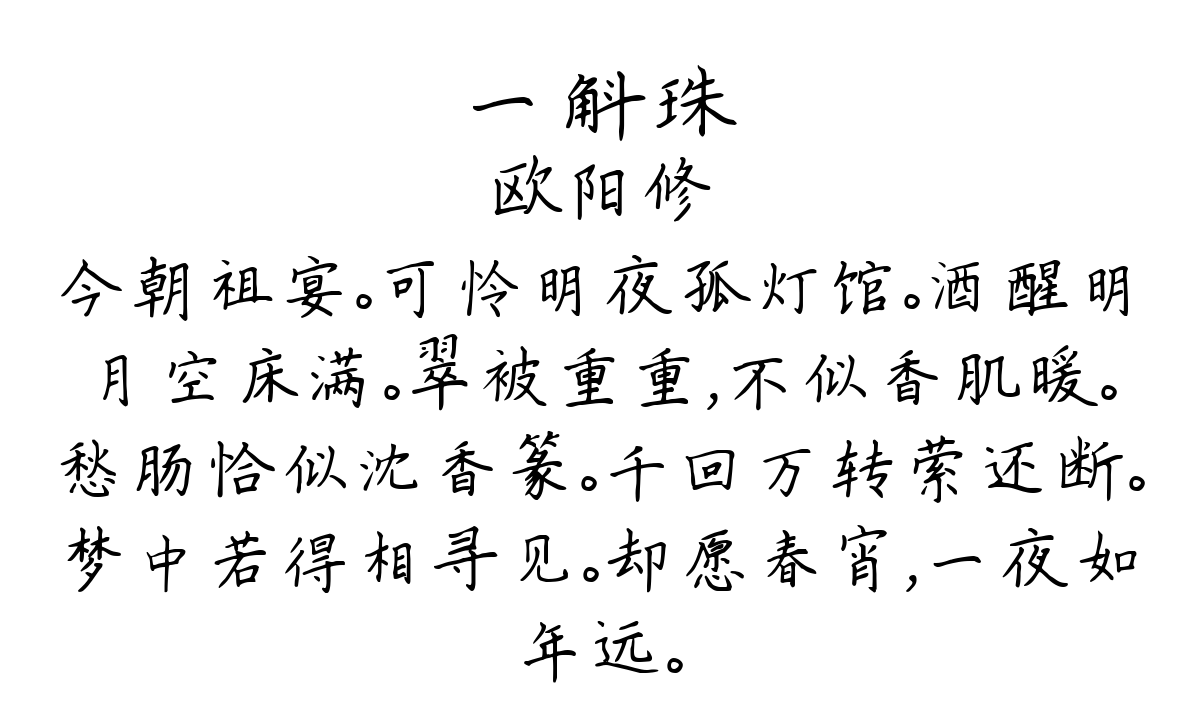 一斛珠
欧阳修
今朝祖宴。可怜明夜孤灯馆。酒醒明
月空床满。翠被重重,不似香肌暖。
愁肠恰似沈香篆。千回万转萦还断。
梦中若得相寻见。却愿春宵,一夜如
年远。